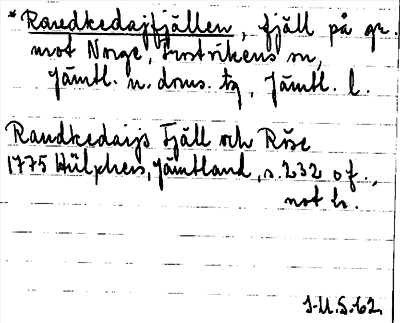 *Randkedajfjällen, fjäll på gr.
mot Norge, Frostvikens sn,
Jämtl. n. doms. tg, Jämtl. l.
Randkedaijs Fjäll och Röse
1775 Hülphers, Jämtland, s. 232 o f.,
not b.
J.U.S. 62.